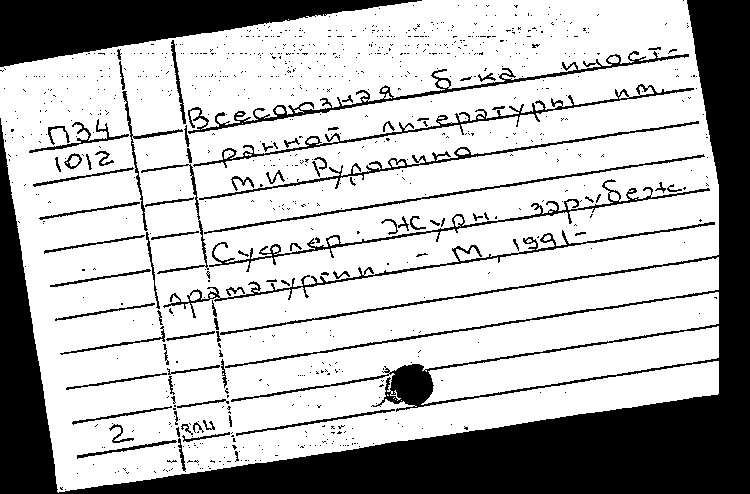 П34
1012
Всесоюзная б-ка иност-
ранной литературы им.
М.И. Рудомино
Суфлер: Журн. зарубеж.
драматургии. - М., 1991-
2